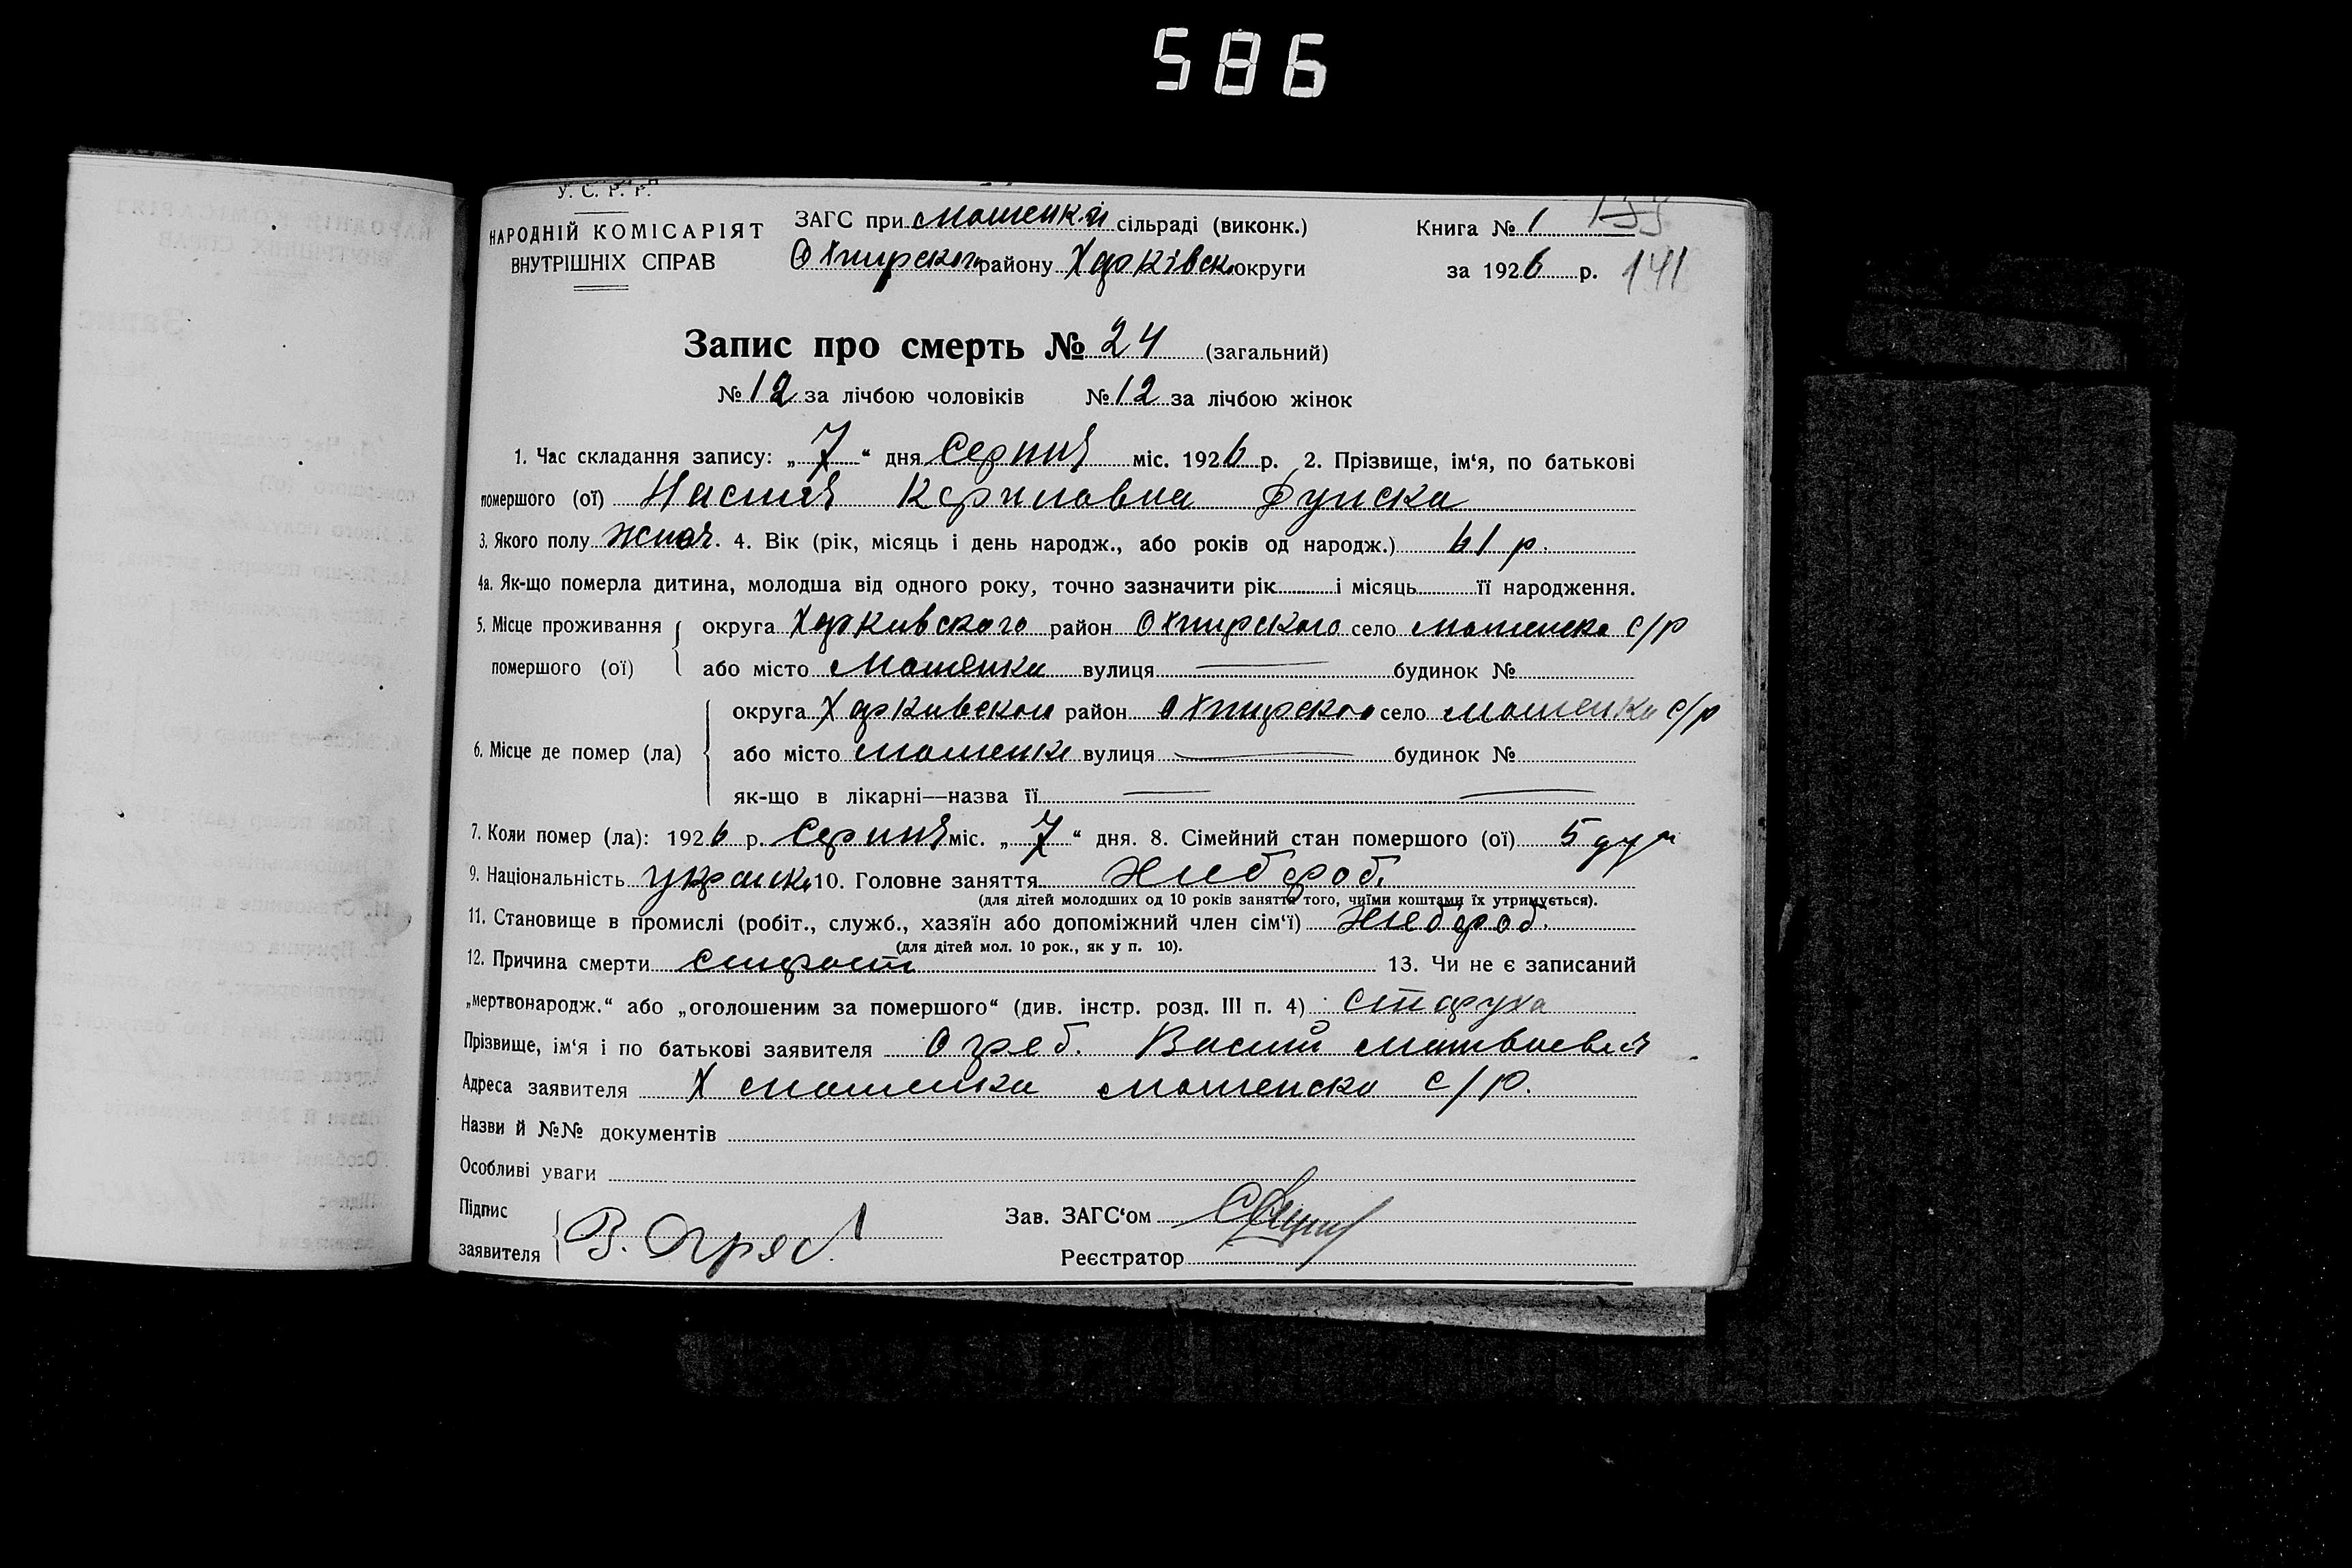 586
У. С. Р. Р.
НАРОДНІЙ КОМІСАРІЯТ
ВНУТРІШНІХ СПРАВ
ЗАГС при Мошенк.й сільраді (виконк.)
Охтирского району Харківск округи
Книга № 1
за 1926 р. 141
Запис про смерть № 24 (загальний)
№ 12 за лічбою чоловіків № 12 за лічбою жінок
1. Час складання запису: „ 7 “ дня Серпня міс. 1926 р. 2. Прізвище, ім‘я, по батькові
помершого (ої) Настя Керилавна
3. Якого полу 4. Вік (рік, місяць і день народж., або років од народж.) 61 р.
4а. Як-що померла дитина, молодша від одного року, точно зазначити рік і місяць її народження.
5. Місце проживання помершого (ої) округа Харкивского район Охтирского село Мошенска с/р
або місто Мошенки вулиця будинок №
6. Місце де помер (ла) округа Харкивского район Охтирского село Мошенки с/р
або місто Мошенки вулиця будинок №
як-що в лікарні—назва її
7. Коли помер (ла): 1926 р. Серпня міс. „ 7 “ дня. 8. Сімейний стан помершого (ої) 5 душ
9. Національність 10. Головне заняття Хлебороб.
(для дітей молодших од 10 років заняття того, чиїми коштами їх утримується).
11. Становище в промислі (робіт., служб., хазяїн або допоміжний член сім‘ї) Хлебороб.
(для дітей мол. 10 рок., як у п. 10).
12. Причина смерти 13. Чи не є записаний
„мертвонародж.“ або „оголошеним за помершого“ (див. інстр. розд. III п. 4) Старуха
Прізвище, ім‘я і по батькові заявителя Огреб. Васил
Адреса заявителя Х Мошенка Мошенска с/р.
Назви й №№ документів
Особливі уваги
Підпис
заявителя В. Огряб
Зав. ЗАГС‘ом
Реєстратор